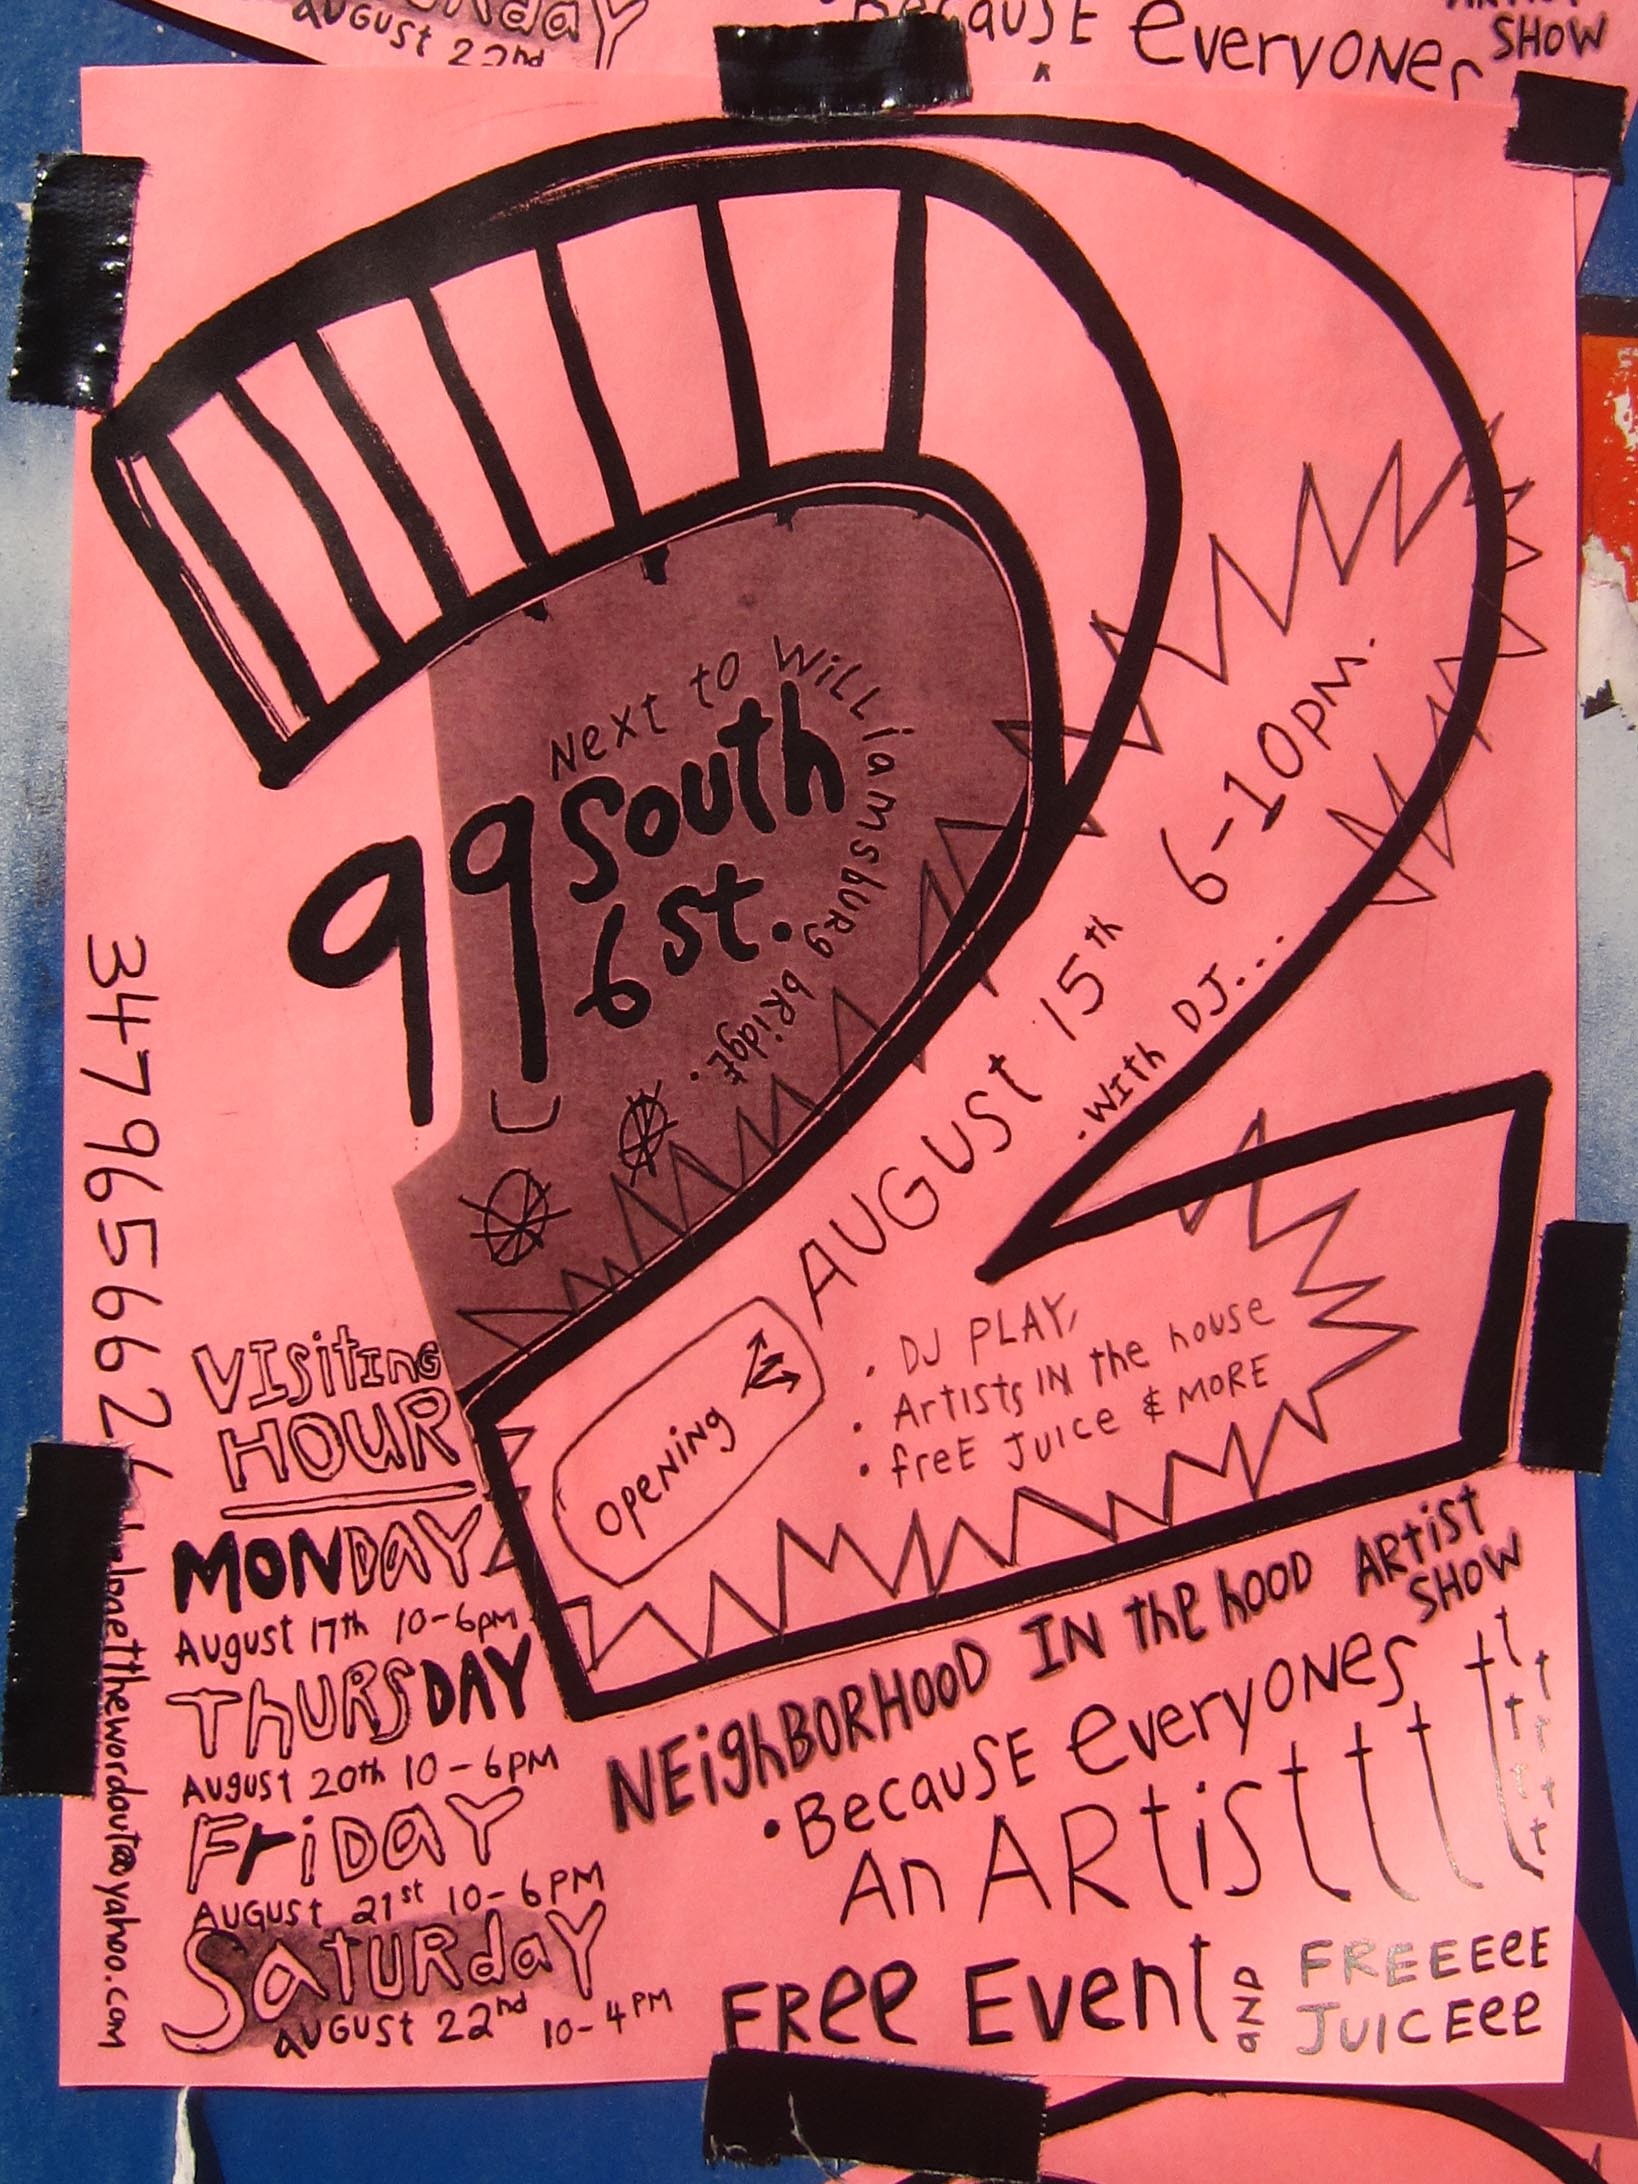 AUGUST 22nd
BECAUSE everyONEs
SHOW
Next to Williamsburg bridge.
99 South
6 st.
AUGUST 15th 6-10pm.
· With DJ...
Opening
· DJ PLAY,
· Artists IN the house
· freE JUICE & MORE
3479656626
VISITING
HOUR
MONDAY
August 17th 10-6pm
THURSDAY
August 20th 10-6PM
FRIDAY
AUGUST 21st 10-6PM
SATURdAY
AUGUST 22nd 10-4PM
NEighBORHOOD IN the hOOD ARtiST
SHOW
· BecauSE everyONEs
An ARtiSttttttttttt
FRee Event aND FREEEeE
JUICEee